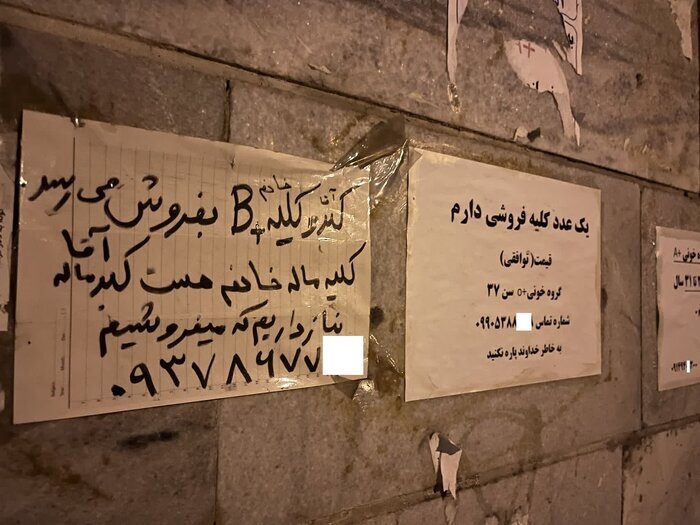 خانم آقا
کبد و کلیه B+ بفروش می رسد
کلیه ماله خانم هست کبد ماله آقا
نیاز داریم که میفروشیم
۰۹۳۷۸۹۷۷
یک عدد کلیه فروشی دارم
قیمت(توافقی)
گروه خونی+o سن ۳۷
شماره تماس ۰۹۹۰۵۳۸۸
به خاطر خداوند پاره نکنید
خونی +A
۳۱ سال